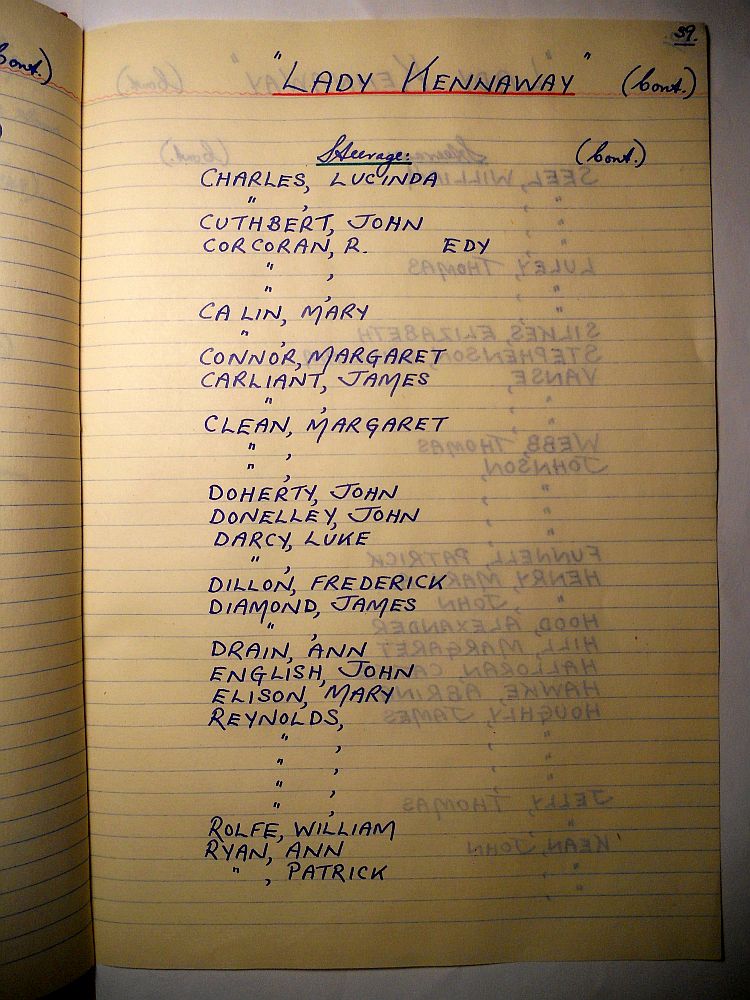 39.
"LADY KENNAWAY" (Cont.)
Steerage: (Cont.)
CHARLES, LUCINDA
" ,
CUTHBERT, JOHN
CORCORAN, R. EDY
" ,
" ,
CALIN, MARY
" ,
CONNOR, MARGARET
CARLIANT, JAMES
" ,
CLEAN, MARGARET
" ,
" ,
DOHERTY, JOHN
DONELLEY, JOHN
DARCY, LUKE
" ,
DILLON, FREDERICK
DIAMOND, JAMES
" ,
DRAIN, ANN
ENGLISH, JOHN
ELISON, MARY
REYNOLDS,
" ,
" ,
" ,
" ,
ROLFE, WILLIAM
RYAN, ANN
" , PATRICK